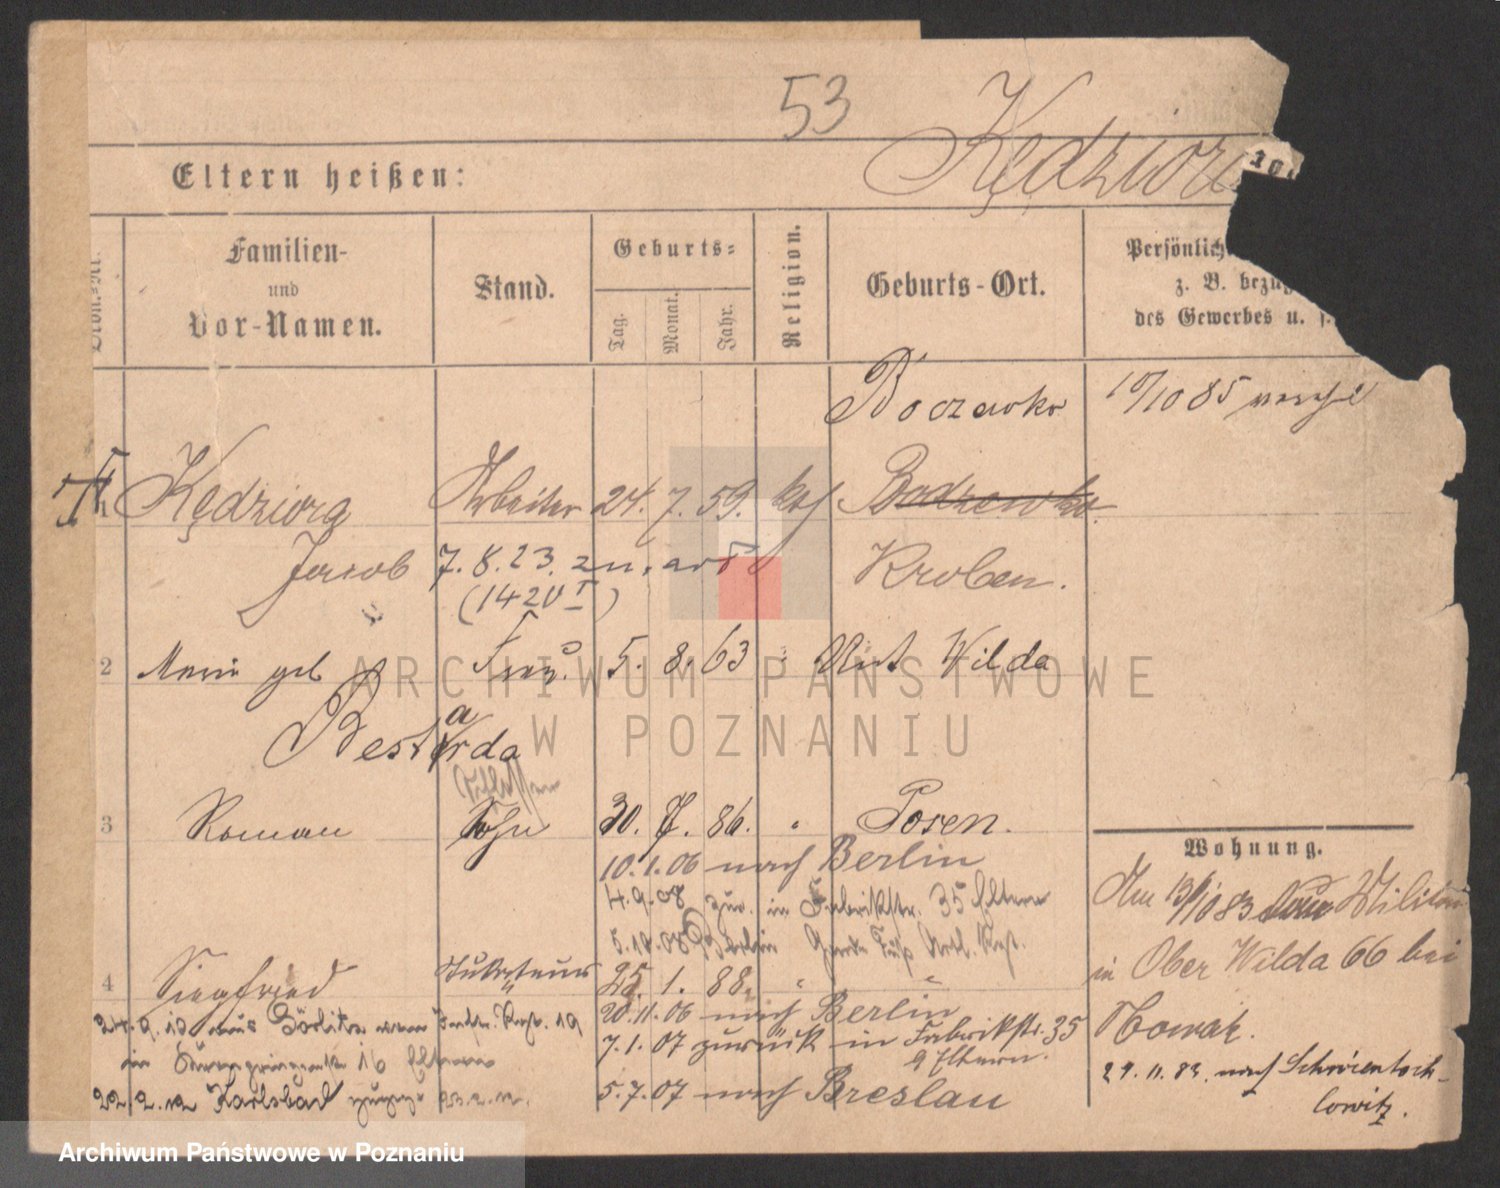 53
Kędziora
Eltern heißen:
Familien-
und
Vor-Namen.
Stand.
Geburts-
Tag.
Monat.
Jahr.
Religion.
Geburts-Ort.
Persönlich
z. B. bezüg
des Gewerbes u. s.
Boczewko 10/10 85
1 Kędziora Arbeiter 24. 7. 59. kath Bodzewko.
Jacob 7. 8. 23. Kroben.
(1420 I)
2 Marie geb Frau. 5. 8. 63 " Wilda
Bestarda
Schlosser
3 Roman Sohn 30. 7. 86. " Posen.
10.1.06 nach Berlin
4.9.08 zur. in Fabrikstr. 35 Eltern
5.10.08 Berlin
4 Siegfried 25. 1. 88. " "
20.11.06 nach Berlin
7.1.07 zurück in Fabrikstr. 35
Eltern.
5.7.07 nach Breslau
24.9.12 aus Görlitz 19
in 16 Eltern
22.2.12 Karlsbad 23.2.12.
Wohnung.
Am 13/10 83 Militär
in Ober Wilda 66 bei
Nowak.
29. 11. 83. nach Schwientoch-
lowitz.
ARCHIWUM PAŃSTWOWE
W POZNANIU
Archiwum Państwowe w Poznaniu